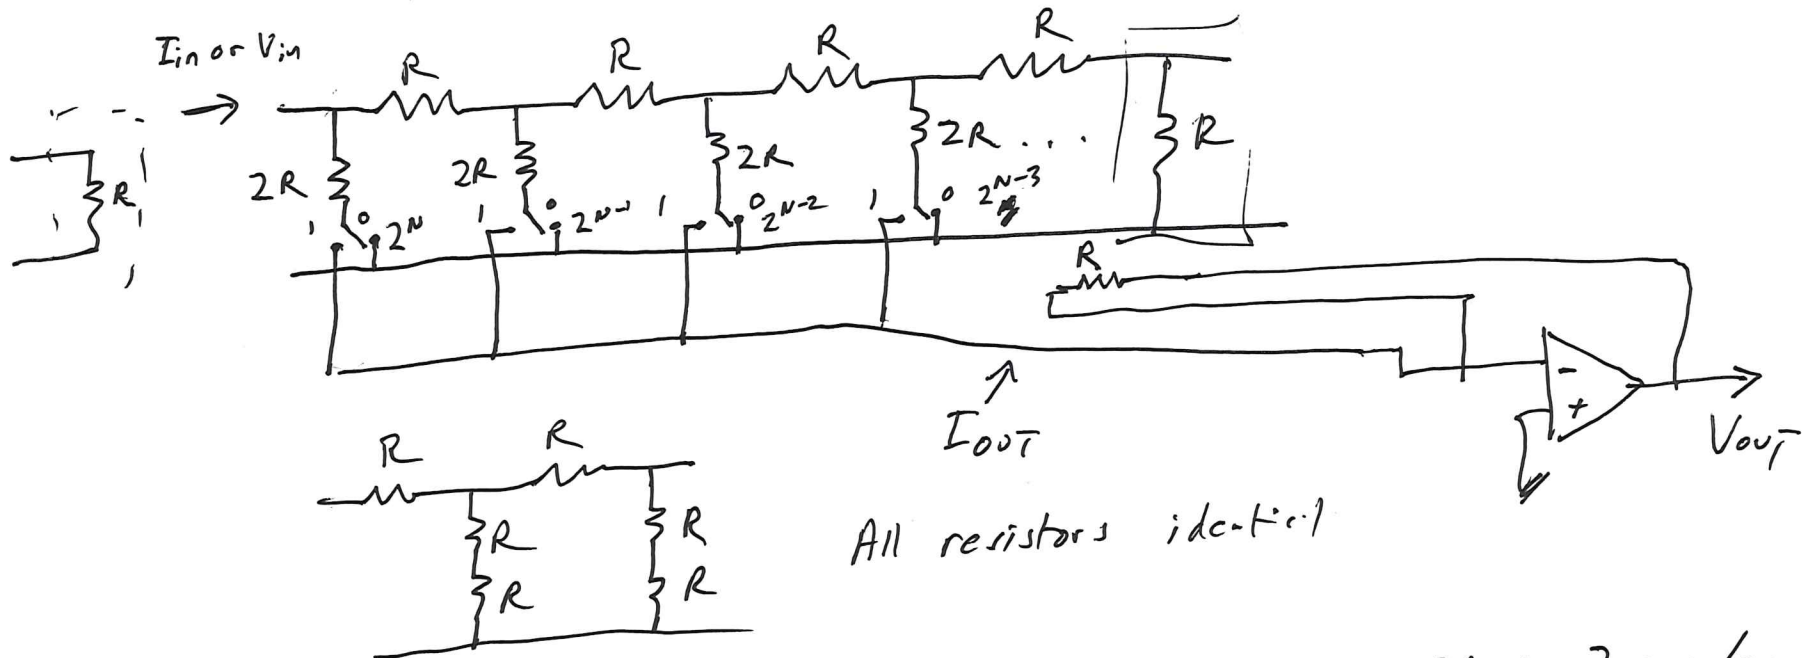 Iin or Vin
R R R R
2R 2R 2R 2R ... R
R
1 0 2^N 1 0 2^N-1 1 0 2^N-2 1 0 2^N-3
R
-
+
IOUT
VOUT
R R
R R
R R
All resistors identical